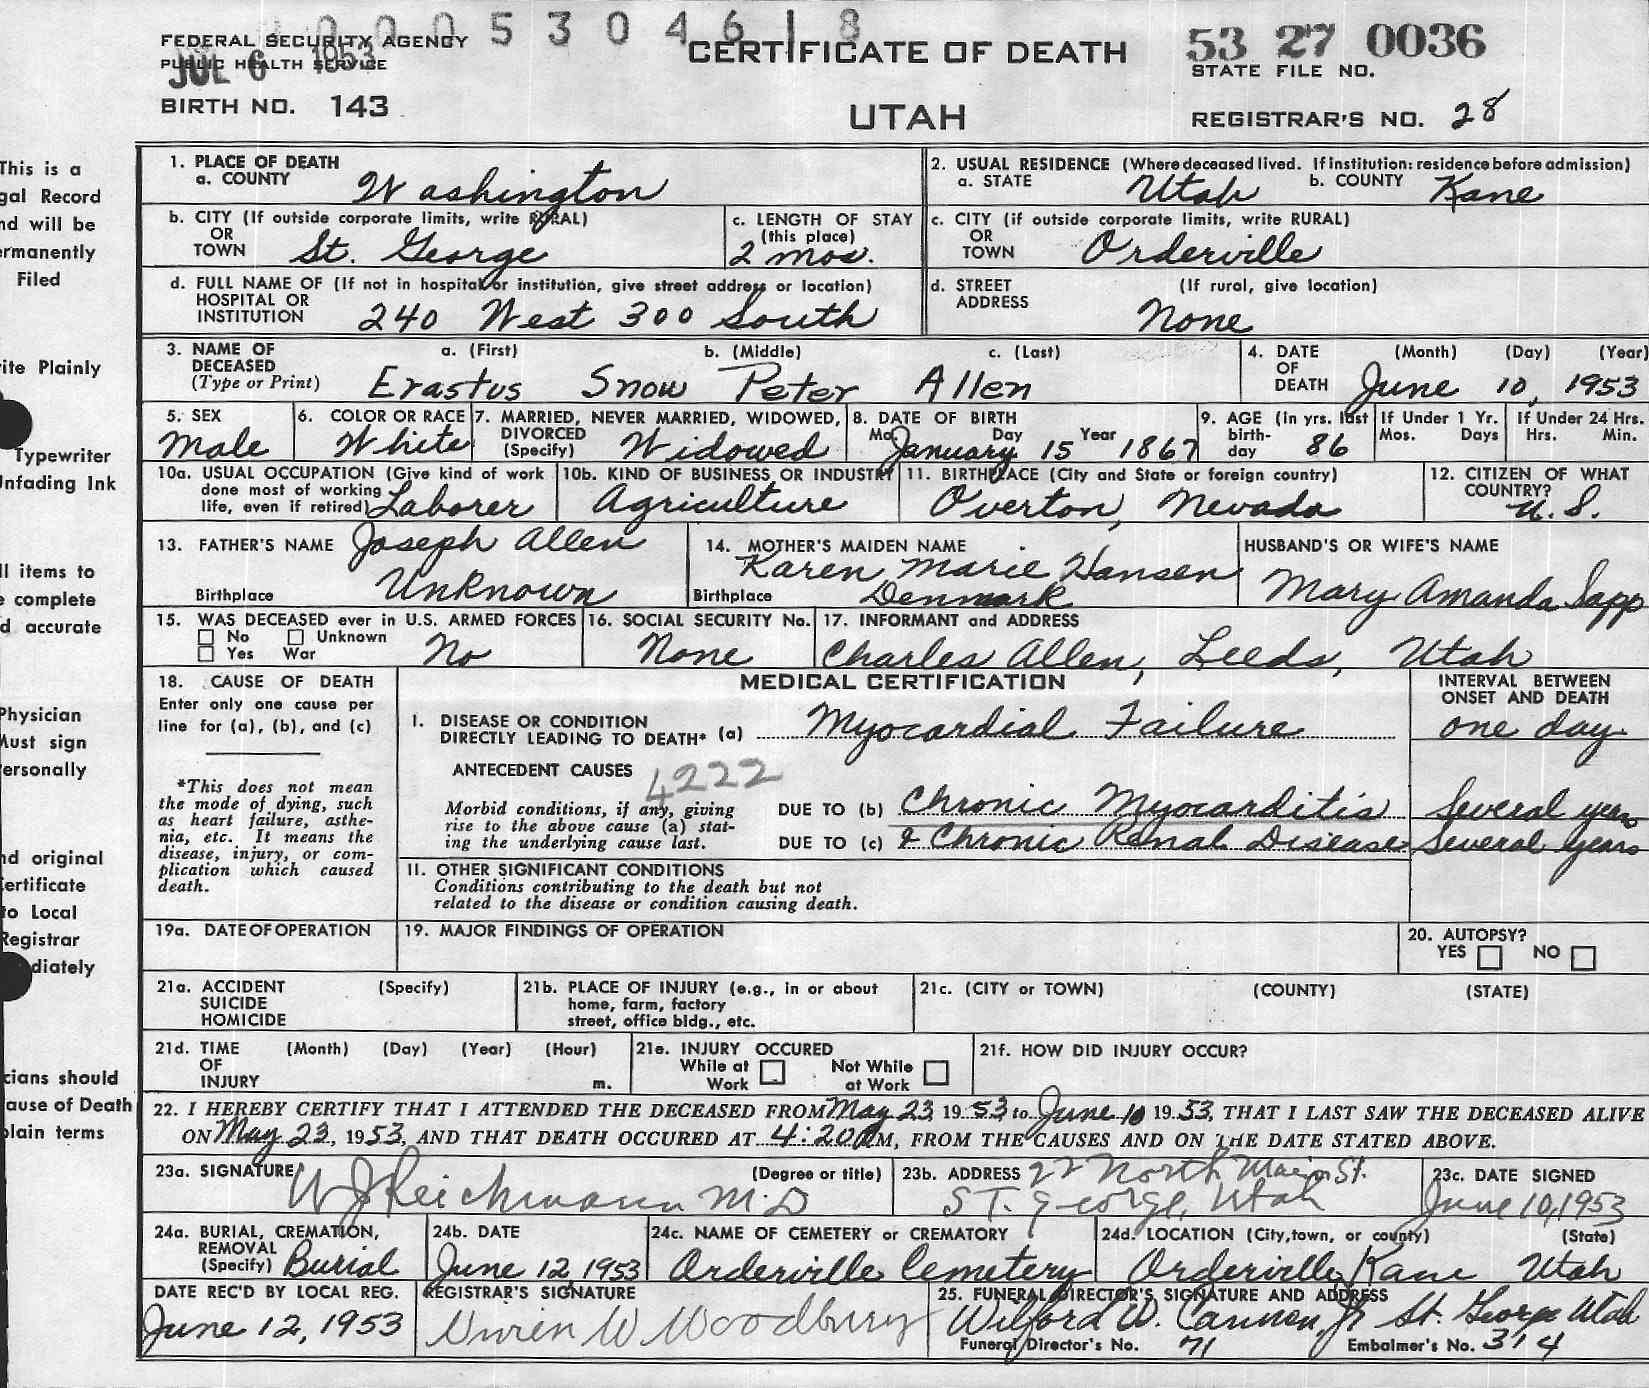 0 0 0 5 3 0 4 6 1 8
FEDERAL SECURITY AGENCY
PUBLIC HEALTH SERVICE
JUL 6 1953
BIRTH NO. 143
CERTIFICATE OF DEATH
UTAH
53 27 0036
STATE FILE NO.
REGISTRAR'S NO. 28
This is a
gal Record
nd will be
rmanently
Filed
rite Plainly
Typewriter
Unfading Ink
ll items to
e complete
d accurate
Physician
Must sign
ersonally
nd original
ertificate
to Local
Registrar
diately
cians should
ause of Death
plain terms
1. PLACE OF DEATH
a. COUNTY Washington
2. USUAL RESIDENCE (Where deceased lived. If institution: residence before admission)
a. STATE Utah b. COUNTY Kane
b. CITY (If outside corporate limits, write RURAL)
OR
TOWN St. George
c. LENGTH OF STAY
(this place)
2 mos.
c. CITY (if outside corporate limits, write RURAL)
OR
TOWN Orderville
d. FULL NAME OF (If not in hospital or institution, give street address or location)
HOSPITAL OR
INSTITUTION 240 West 300 South
d. STREET (If rural, give location)
ADDRESS None
3. NAME OF DECEASED a. (First) b. (Middle) c. (Last)
(Type or Print) Erastus Snow Peter Allen
4. DATE OF DEATH (Month) (Day) (Year)
June 10, 1953
5. SEX
Male
6. COLOR OR RACE
White
7. MARRIED, NEVER MARRIED, WIDOWED,
DIVORCED
(Specify) Widowed
8. DATE OF BIRTH
Mo. Day Year
January 15 1867
9. AGE (in yrs. last
birth-
day 86
If Under 1 Yr.
Mos. Days
If Under 24 Hrs.
Hrs. Min.
10a. USUAL OCCUPATION (Give kind of work
done most of working
life, even if retired) Laborer
10b. KIND OF BUSINESS OR INDUSTRY
Agriculture
11. BIRTHPLACE (City and State or foreign country)
Overton, Nevada
12. CITIZEN OF WHAT
COUNTRY?
U. S.
13. FATHER'S NAME Joseph Allen
Birthplace Unknown
14. MOTHER'S MAIDEN NAME
Karen Marie Hansen
Birthplace Denmark
HUSBAND'S OR WIFE'S NAME
Mary Amanda Sapp
15. WAS DECEASED ever in U.S. ARMED FORCES
No Unknown
Yes War No
16. SOCIAL SECURITY No.
None
17. INFORMANT and ADDRESS
Charles Allen, Leeds, Utah
18. CAUSE OF DEATH
Enter only one cause per
line for (a), (b), and (c)
*This does not mean
the mode of dying, such
as heart failure, asthe-
nia, etc. It means the
disease, injury, or com-
plication which caused
death.
MEDICAL CERTIFICATION
INTERVAL BETWEEN
ONSET AND DEATH
I. DISEASE OR CONDITION
DIRECTLY LEADING TO DEATH* (a) Myocardial Failure one day
ANTECEDENT CAUSES 4222
Morbid conditions, if any, giving
rise to the above cause (a) stat-
ing the underlying cause last.
DUE TO (b) Chronic Myocarditis Several years
DUE TO (c) & Chronic Renal Disease Several years
II. OTHER SIGNIFICANT CONDITIONS
Conditions contributing to the death but not
related to the disease or condition causing death.
19a. DATE OF OPERATION
19. MAJOR FINDINGS OF OPERATION
20. AUTOPSY?
YES NO
21a. ACCIDENT (Specify)
SUICIDE
HOMICIDE
21b. PLACE OF INJURY (e.g., in or about
home, farm, factory
street, office bldg., etc.
21c. (CITY or TOWN) (COUNTY) (STATE)
21d. TIME (Month) (Day) (Year) (Hour)
OF
INJURY m.
21e. INJURY OCCURED
While at Not While
Work at Work
21f. HOW DID INJURY OCCUR?
22. I HEREBY CERTIFY THAT I ATTENDED THE DECEASED FROM May 23 1953 to June 10 1953, THAT I LAST SAW THE DECEASED ALIVE
ON May 23, 1953, AND THAT DEATH OCCURED AT 4:20 AM, FROM THE CAUSES AND ON THE DATE STATED ABOVE.
23a. SIGNATURE (Degree or title)
W J Reichmann M.D
23b. ADDRESS 22 North Main St.
ST. George, Utah
23c. DATE SIGNED
June 10, 1953
24a. BURIAL, CREMATION,
REMOVAL
(Specify) Burial
24b. DATE
June 12, 1953
24c. NAME OF CEMETERY or CREMATORY
Orderville Cemetery
24d. LOCATION (City, town, or county) (State)
Orderville, Kane Utah
DATE REC'D BY LOCAL REG.
June 12, 1953
REGISTRAR'S SIGNATURE
W Woodbury
25. FUNERAL DIRECTOR'S SIGNATURE AND ADDRESS
Wilford W. Cannon, Jr St. George Utah
Funeral Director's No. 71 Embalmer's No. 314